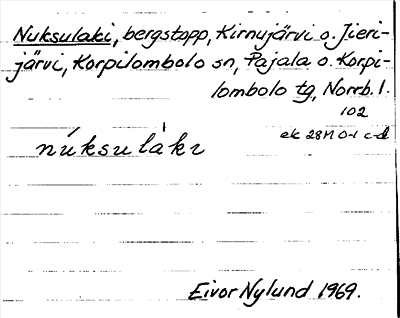 Nuksulaki, bergstopp, Kirnujärvi o. Jieri-
järvi, Korpilombolo sn, Pajala o. Korpi-
lombolo tg, Norrb. l.
102
ek 28M 0-1 c-d
nùksulàkɩ
Eivor Nylund 1969.